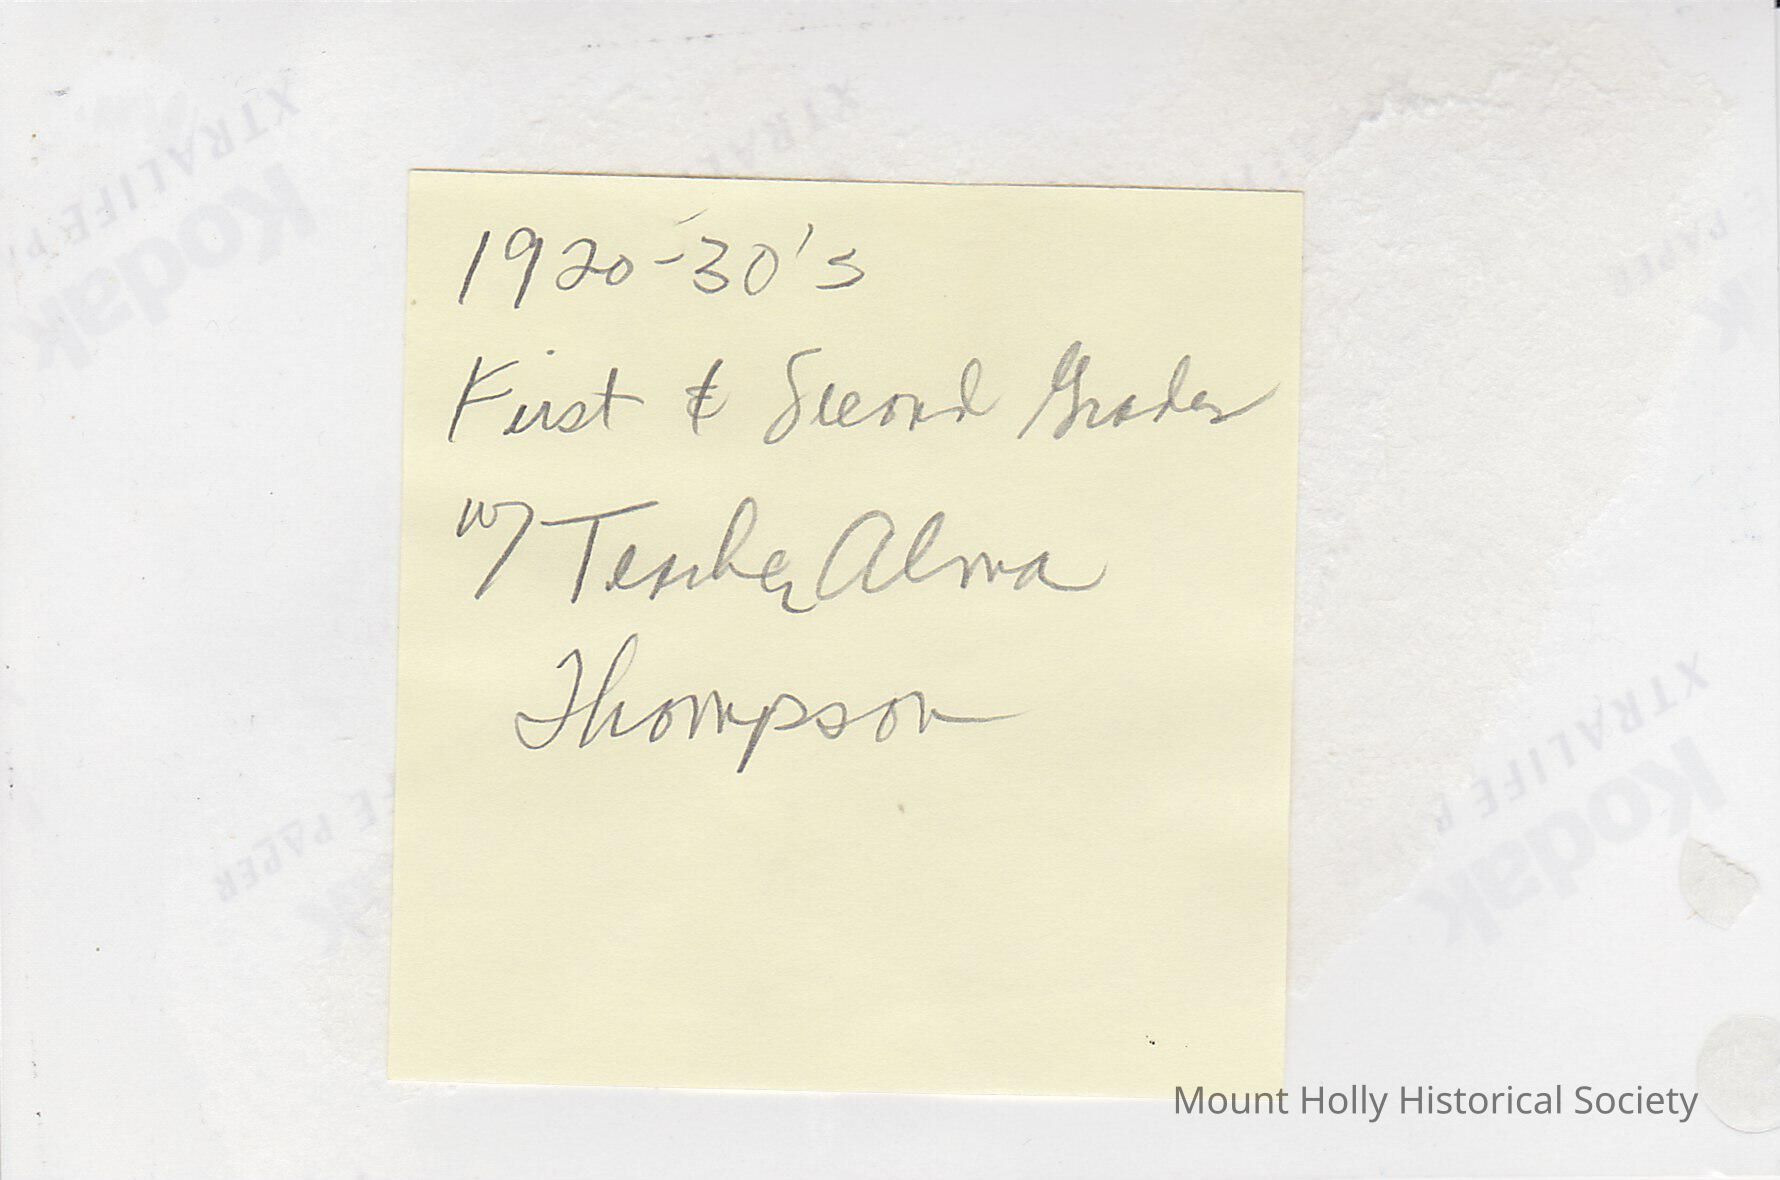 1920-30's
First & Second Grades
w/ Teacher Alma
Thompson
Mount Holly Historical Society
XTRALIFE P
Kodak
XTRA
PAPER
K
FE PAPER
ak
XTRALIFE P
Kodak